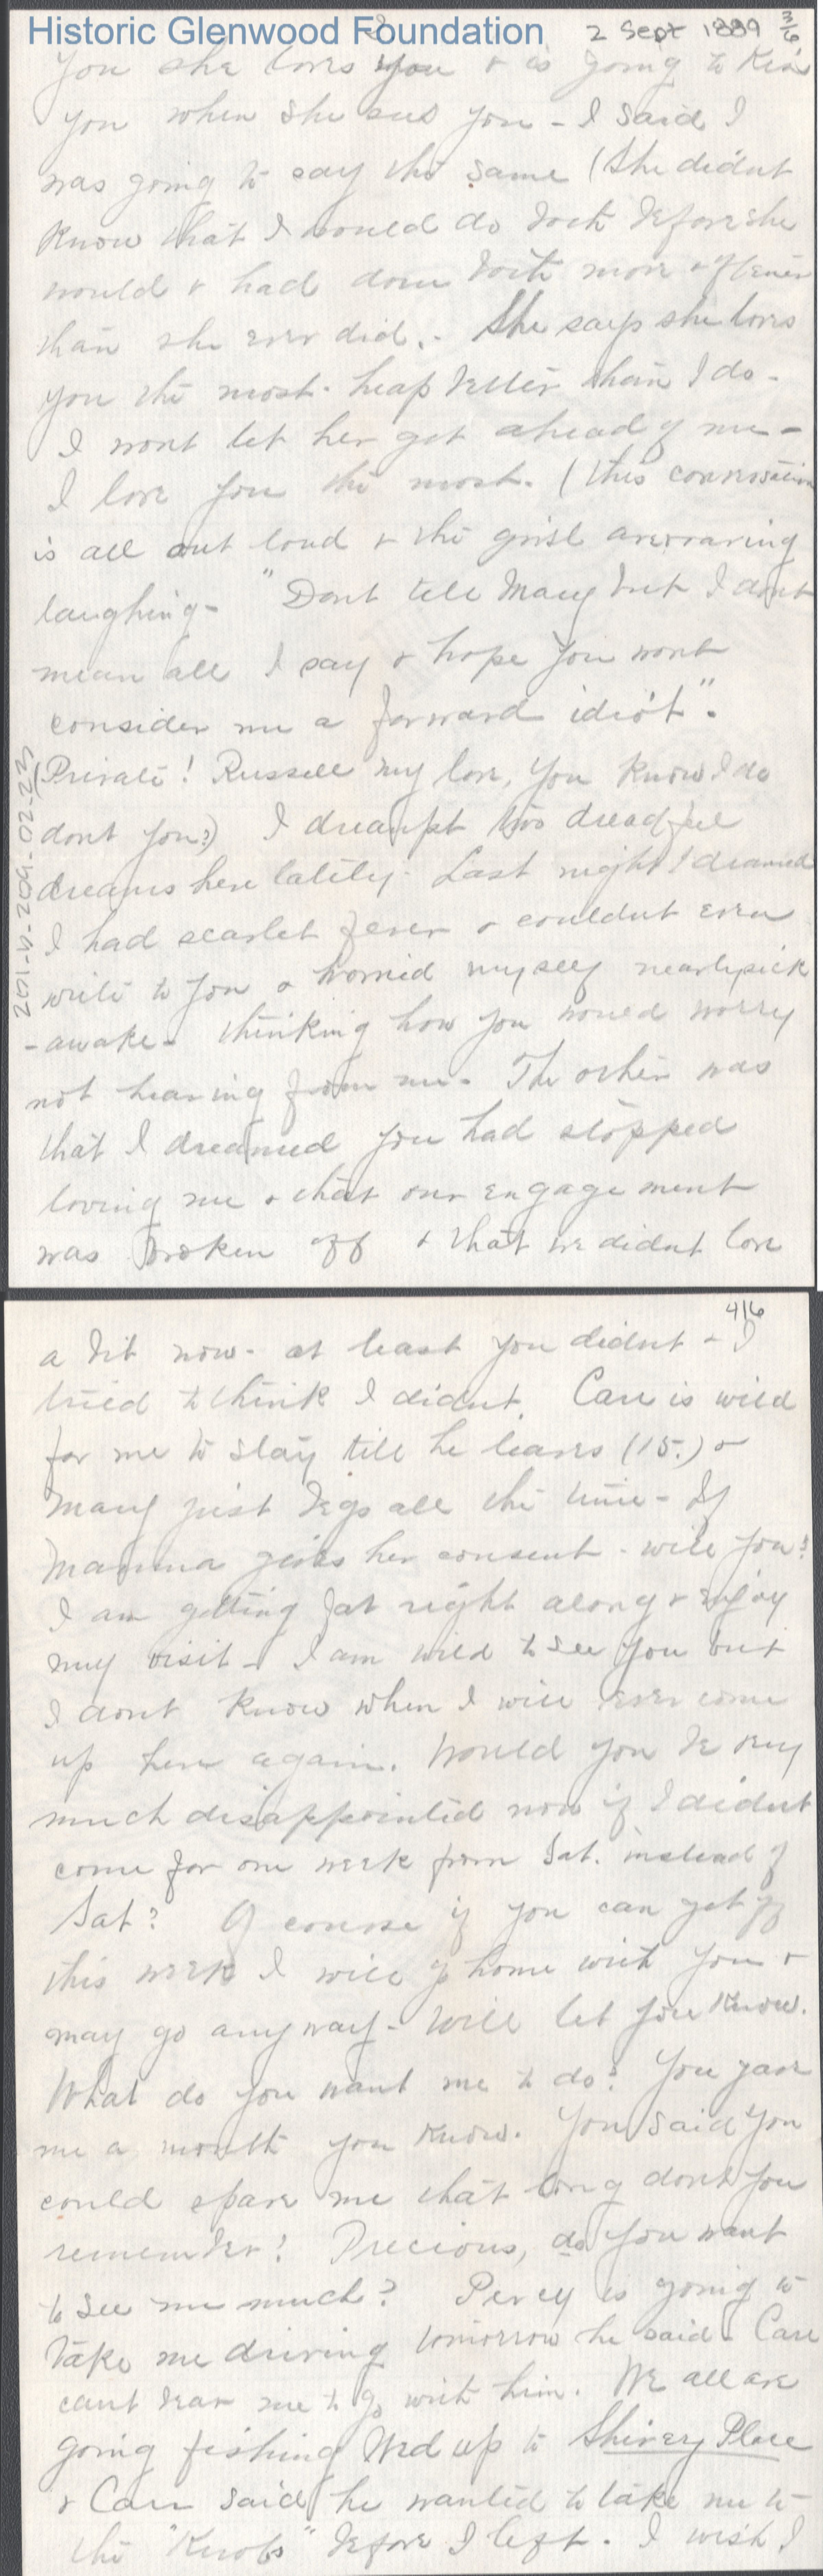 Historic Glenwood Foundation
2 Sept 1889 3/6
you she loves you & is going to kiss
you when she sees you - I said I
was going to say the same (She didnt
know that I would do both before she
would & had done both more & oftener
than she ever did. - She says she loves
you the most - heap better than I do -
I wont let her get ahead of me -
I love you the most. (this conversation
is all out loud & the girls are roaring
laughing - "Dont tell Mary but I dont
mean all I say & hope you wont
consider me a forward idiot".
(Private! Russell my love, you know I do
dont you?) I dreampt two dreadful
dreams here lately. Last night I dreamed
I had scarlet fever & couldnt even
write to you & worried myself nearly sick
- awake - thinking how you would worry
not hearing from me. The other was
that I dreamed you had stopped
loving me & that our engagement
was broken off & that we didnt love
201-4-204-02-23
4/6
a bit now - at least you didnt - I
tried to think I didnt. Carr is wild
for me to stay till he leaves (15.) &
Mary just begs all the time - If
Mamma gives her consent - will you?
I am getting fat right along & enjoy
my visit - I am wild to see you but
I dont know when I will ever come
up here again. Would you be very
much disappointed now if I didnt
come for one week from Sat. instead of
Sat? Of course if you can get off
this week I will go home with you &
may go anyway - Will let you know.
What do you want me to do? You gave
me a month you know. You said you
could spare me that long dont you
remember? Precious, do you want
to see me much? Percy is going to
take me driving tomorrow he said - Carr
cant bear me to go with him. We all are
going fishing Wed up to Shivery Place
& Carr said he wanted to take me to
the "Knobs" before I left. I wish I